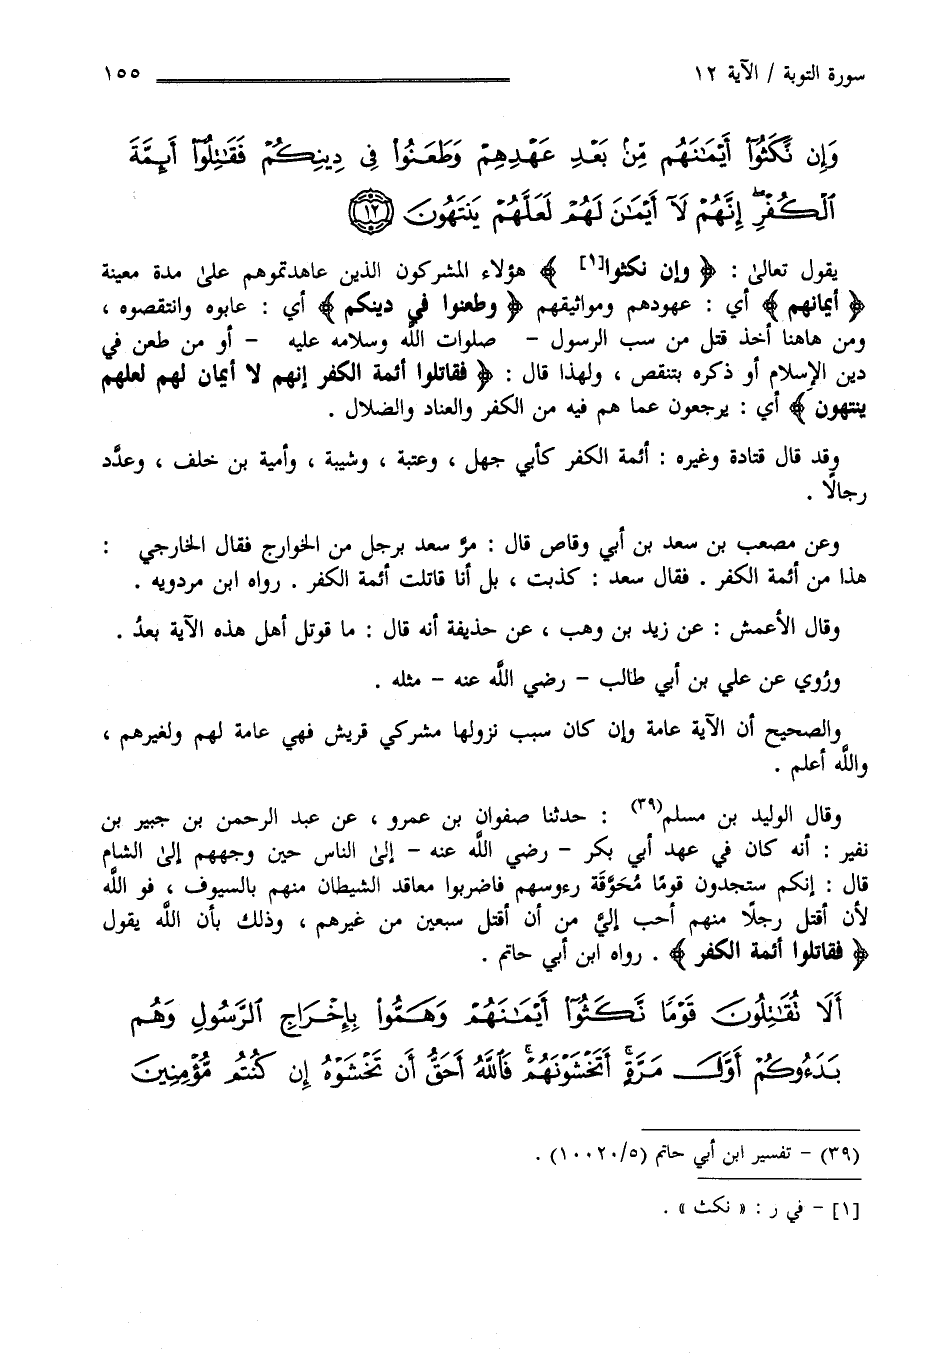 سورة التوبة / الآية ١٢ ١٥٥
وَإِن نَّكَثُوٓا۟ أَيْمَـٰنَهُم مِّنۢ بَعْدِ عَهْدِهِمْ وَطَعَنُوا۟ فِى دِينِكُمْ فَقَـٰتِلُوٓا۟ أَئِمَّةَ
ٱلْكُفْرِ ۙ إِنَّهُمْ لَآ أَيْمَـٰنَ لَهُمْ لَعَلَّهُمْ يَنتَهُونَ ١٢
يقول تعالىٰ : ﴿ وإن نكثوا[١] ﴾ هؤلاء المشركون الذين عاهدتموهم علىٰ مدة معينة
﴿ أيمانهم ﴾ أي : عهودهم ومواثيقهم ﴿ وطعنوا في دينكم ﴾ أي : عابوه وانتقصوه ،
ومن هاهنا أخذ قتل من سب الرسول - صلوات اللَّه وسلامه عليه - أو من طعن في
دين الإسلام أو ذكره بتنقص ، ولهذا قال : ﴿ فقاتلوا أئمة الكفر إنهم لا أيمان لهم لعلهم
ينتهون ﴾ أي : يرجعون عما هم فيه من الكفر والعناد والضلال .
وقد قال قتادة وغيره : أئمة الكفر كأبي جهل ، وعتبة ، وشيبة ، وأمية بن خلف ، وعدَّد
رجالًا .
وعن مصعب بن سعد بن أبي وقاص قال : مرَّ سعد برجل من الخوارج فقال الخارجي :
هذا من أئمة الكفر . فقال سعد : كذبت ، بل أنا قاتلت أئمة الكفر . رواه ابن مردويه .
وقال الأعمش : عن زيد بن وهب ، عن حذيفة أنه قال : ما قوتل أهل هذه الآية بعدُ .
ورُوي عن علي بن أبي طالب - رضي اللَّه عنه - مثله .
والصحيح أن الآية عامة وإن كان سبب نزولها مشركي قريش فهي عامة لهم ولغيرهم ،
واللَّه أعلم .
وقال الوليد بن مسلم(٣٩) : حدثنا صفوان بن عمرو ، عن عبد الرحمن بن جبير بن
نفير : أنه كان في عهد أبي بكر - رضي اللَّه عنه - إلىٰ الناس حين وجههم إلىٰ الشام
قال : إنكم ستجدون قومًا مُحَوَّقَة رءوسهم فاضربوا معاقد الشيطان منهم بالسيوف ، فو اللَّه
لأن أقتل رجلًا منهم أحب إليَّ من أن أقتل سبعين من غيرهم ، وذلك بأن اللَّه يقول
﴿ فقاتلوا أئمة الكفر ﴾ . رواه ابن أبي حاتم .
أَلَا تُقَـٰتِلُونَ قَوْمًا نَّكَثُوٓا۟ أَيْمَـٰنَهُمْ وَهَمُّوا۟ بِإِخْرَاجِ ٱلرَّسُولِ وَهُم
بَدَءُوكُمْ أَوَّلَ مَرَّةٍ ۚ أَتَخْشَوْنَهُمْ ۚ فَٱللَّهُ أَحَقُّ أَن تَخْشَوْهُ إِن كُنتُم مُّؤْمِنِينَ
(٣٩) - تفسير ابن أبي حاتم (١٠٠٢٠/٥) .
[١] - في ر : « نكث » .